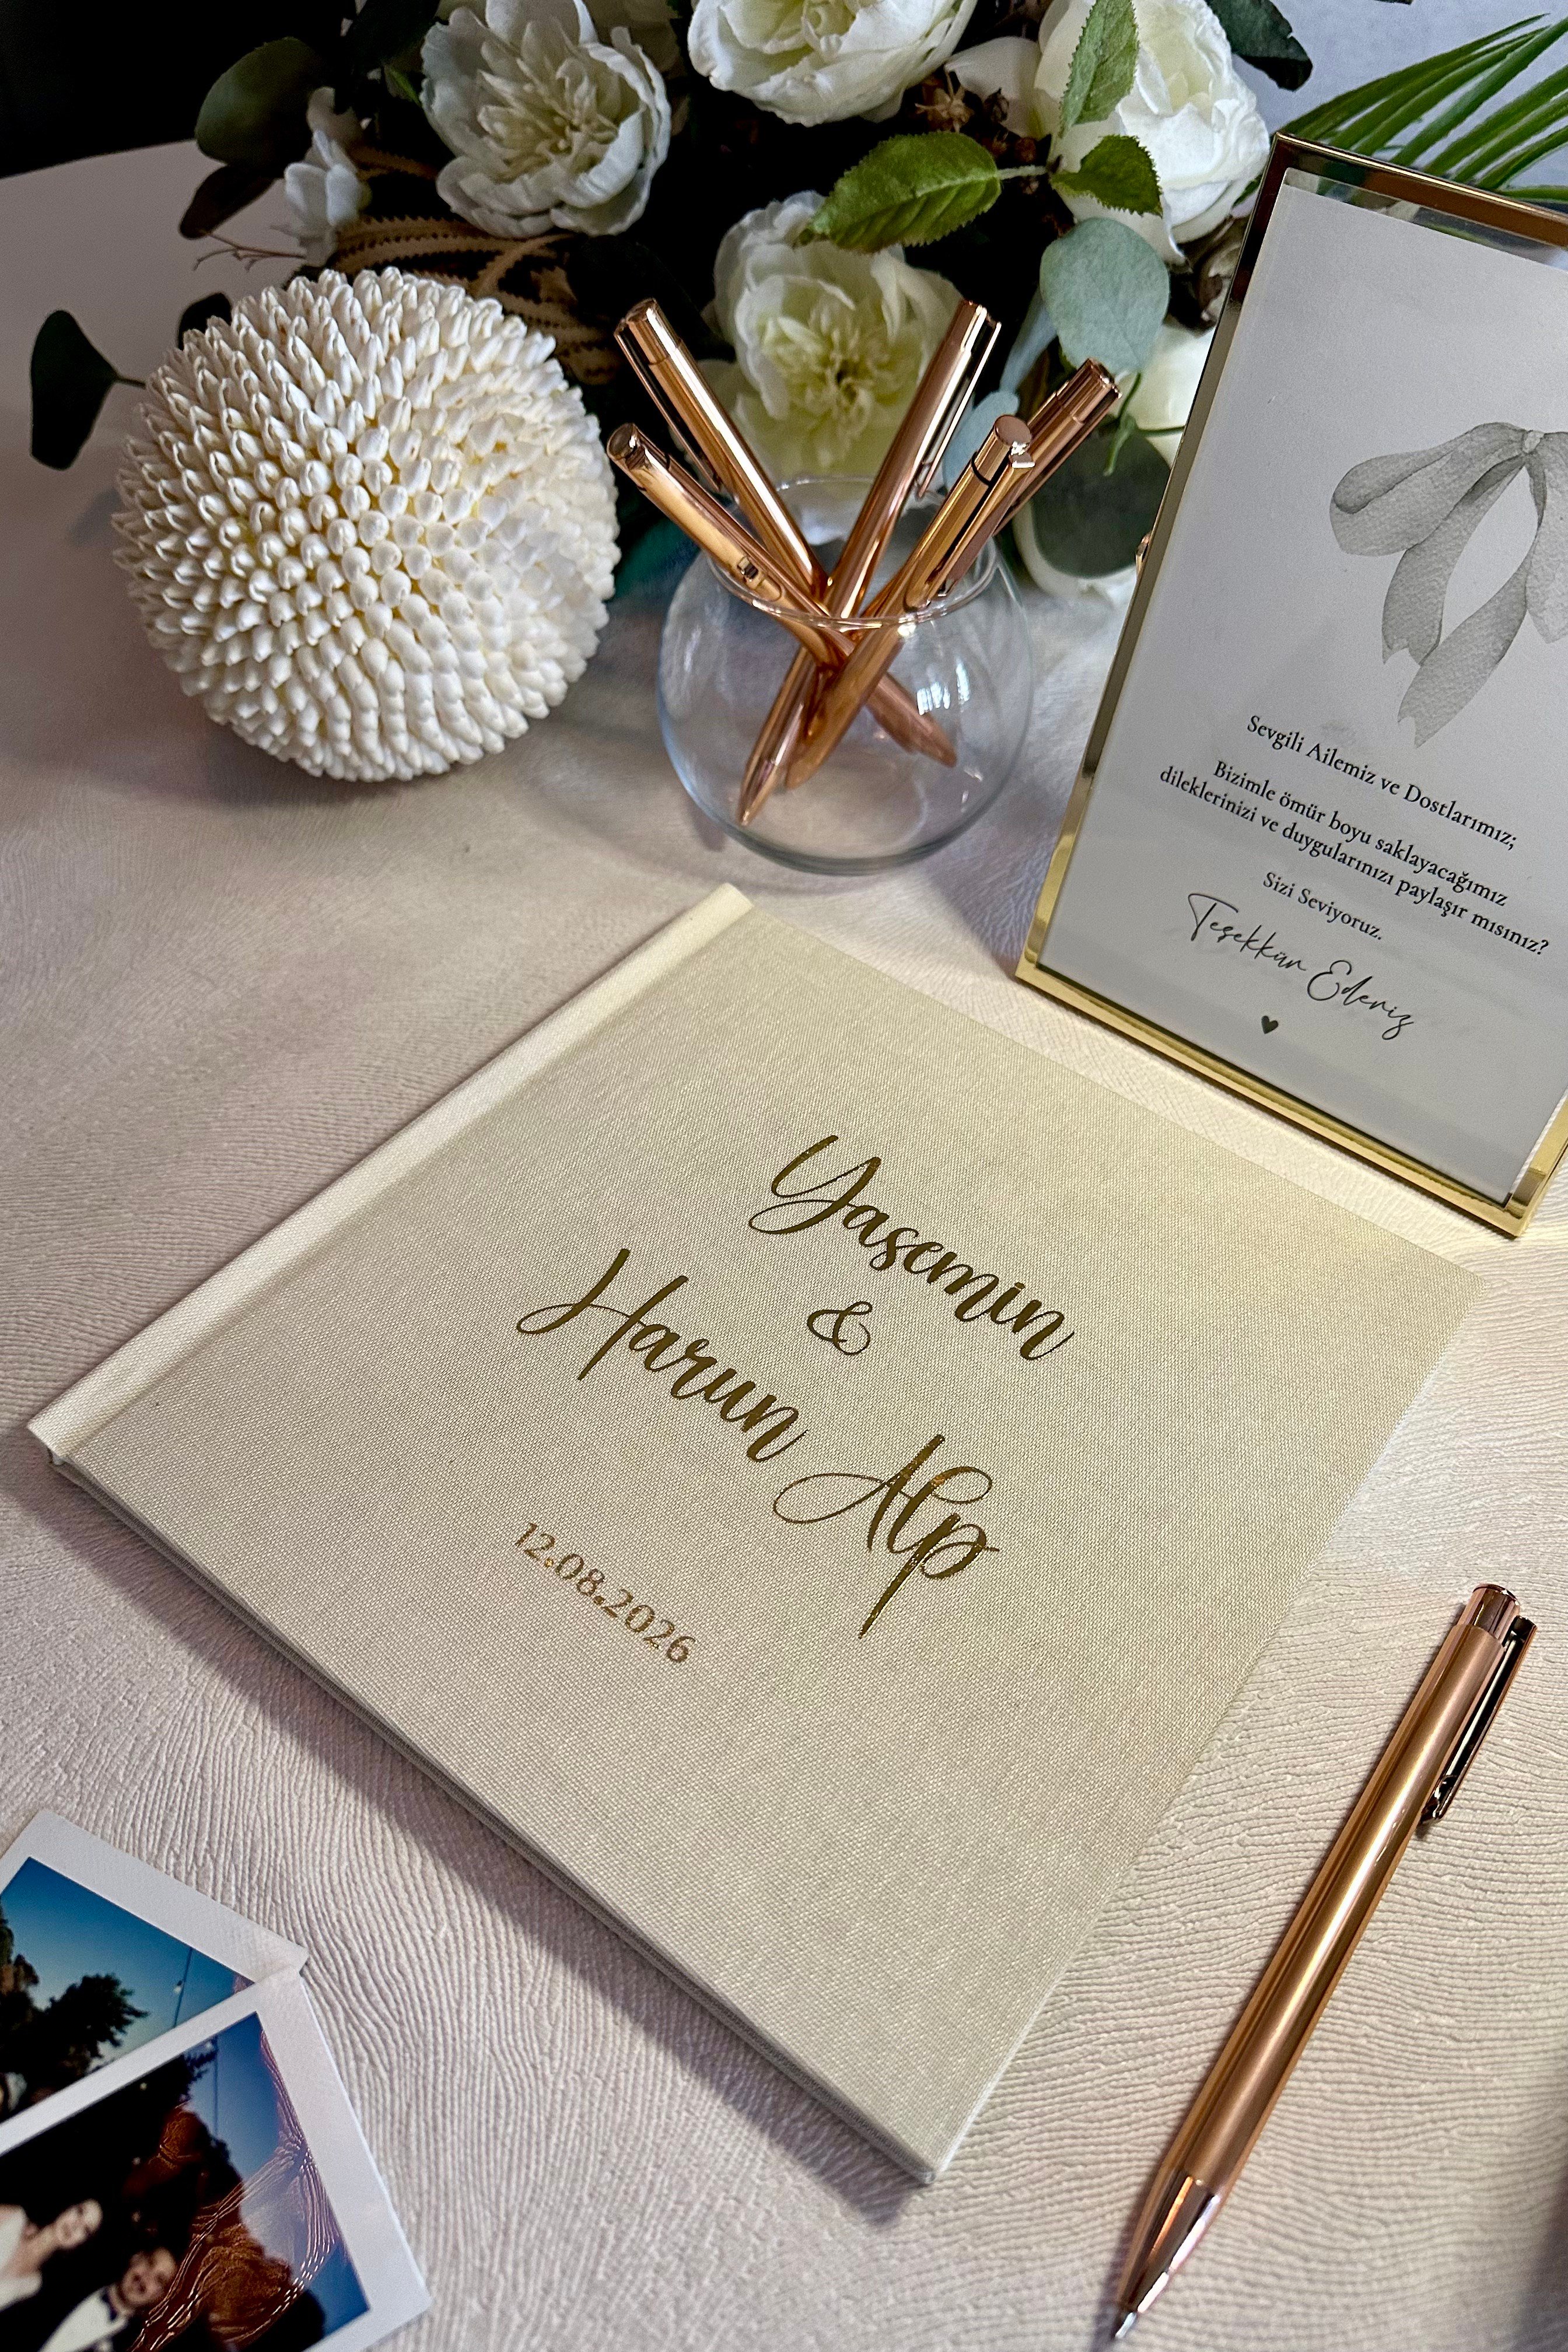 Sevgili Ailemiz ve Dostlarımız;
Bizimle ömür boyu saklayacağımız
dileklerinizi ve duygularınızı paylaşır mısınız?
Sizi Seviyoruz.
Teşekkür Ederiz
Yasemin
&
Harun Alp
12.08.2026